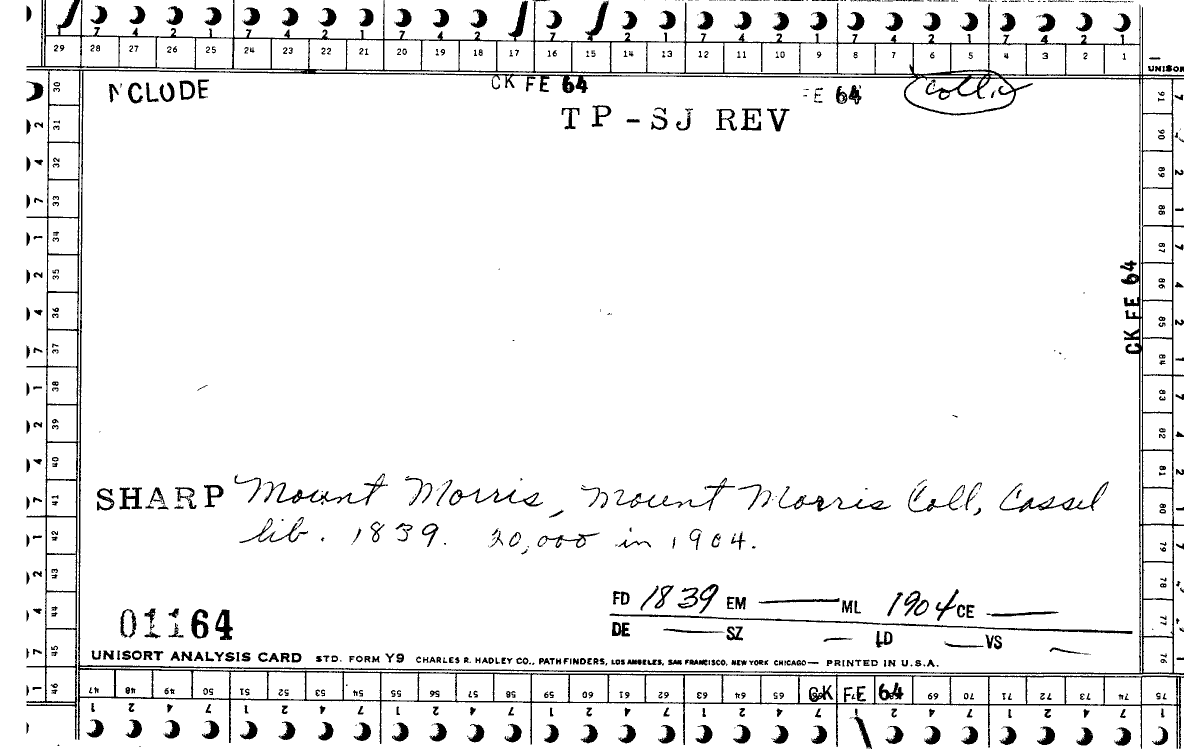 1 7 4 2 1 7 4 2 1 7 4 2 1 7 4 2 1 7 4 2 1 7 4 2 1 7 4 2 1
29 28 27 26 25 24 23 22 21 20 19 18 17 16 15 14 13 12 11 10 9 8 7 6 5 4 3 2 1
UNISOR
NCLODE CK FE 64 FE 64
TP-SJ REV
30 31 32 33 34 35 36 37 38 39 40 41 42 43 44 45 46
2 4 7 1 2 4 7 1 2 4 7 1 2 4 7 1
91 90 89 88 87 86 85 84 83 82 81 80 79 78 77 76
CK FE 64
SHARP Mount Morris, Mount Morris Coll, Cassel
lib. 1839. 20,000 in 1904.
FD 1839 EM — ML 1904 CE —
DE — SZ — LD — VS —
01164
UNISORT ANALYSIS CARD STD. FORM Y9 CHARLES R. HADLEY CO., PATHFINDERS, LOS ANGELES, SAN FRANCISCO, NEW YORK CHICAGO — PRINTED IN U.S.A.
47 48 49 50 51 52 53 54 55 56 57 58 59 60 61 62 63 64 65 CK FE 64 69 70 71 72 73 74 75
1 2 4 7 1 2 4 7 1 2 4 7 1 2 4 7 1 2 4 7 1 2 4 7 1 2 4 7 1